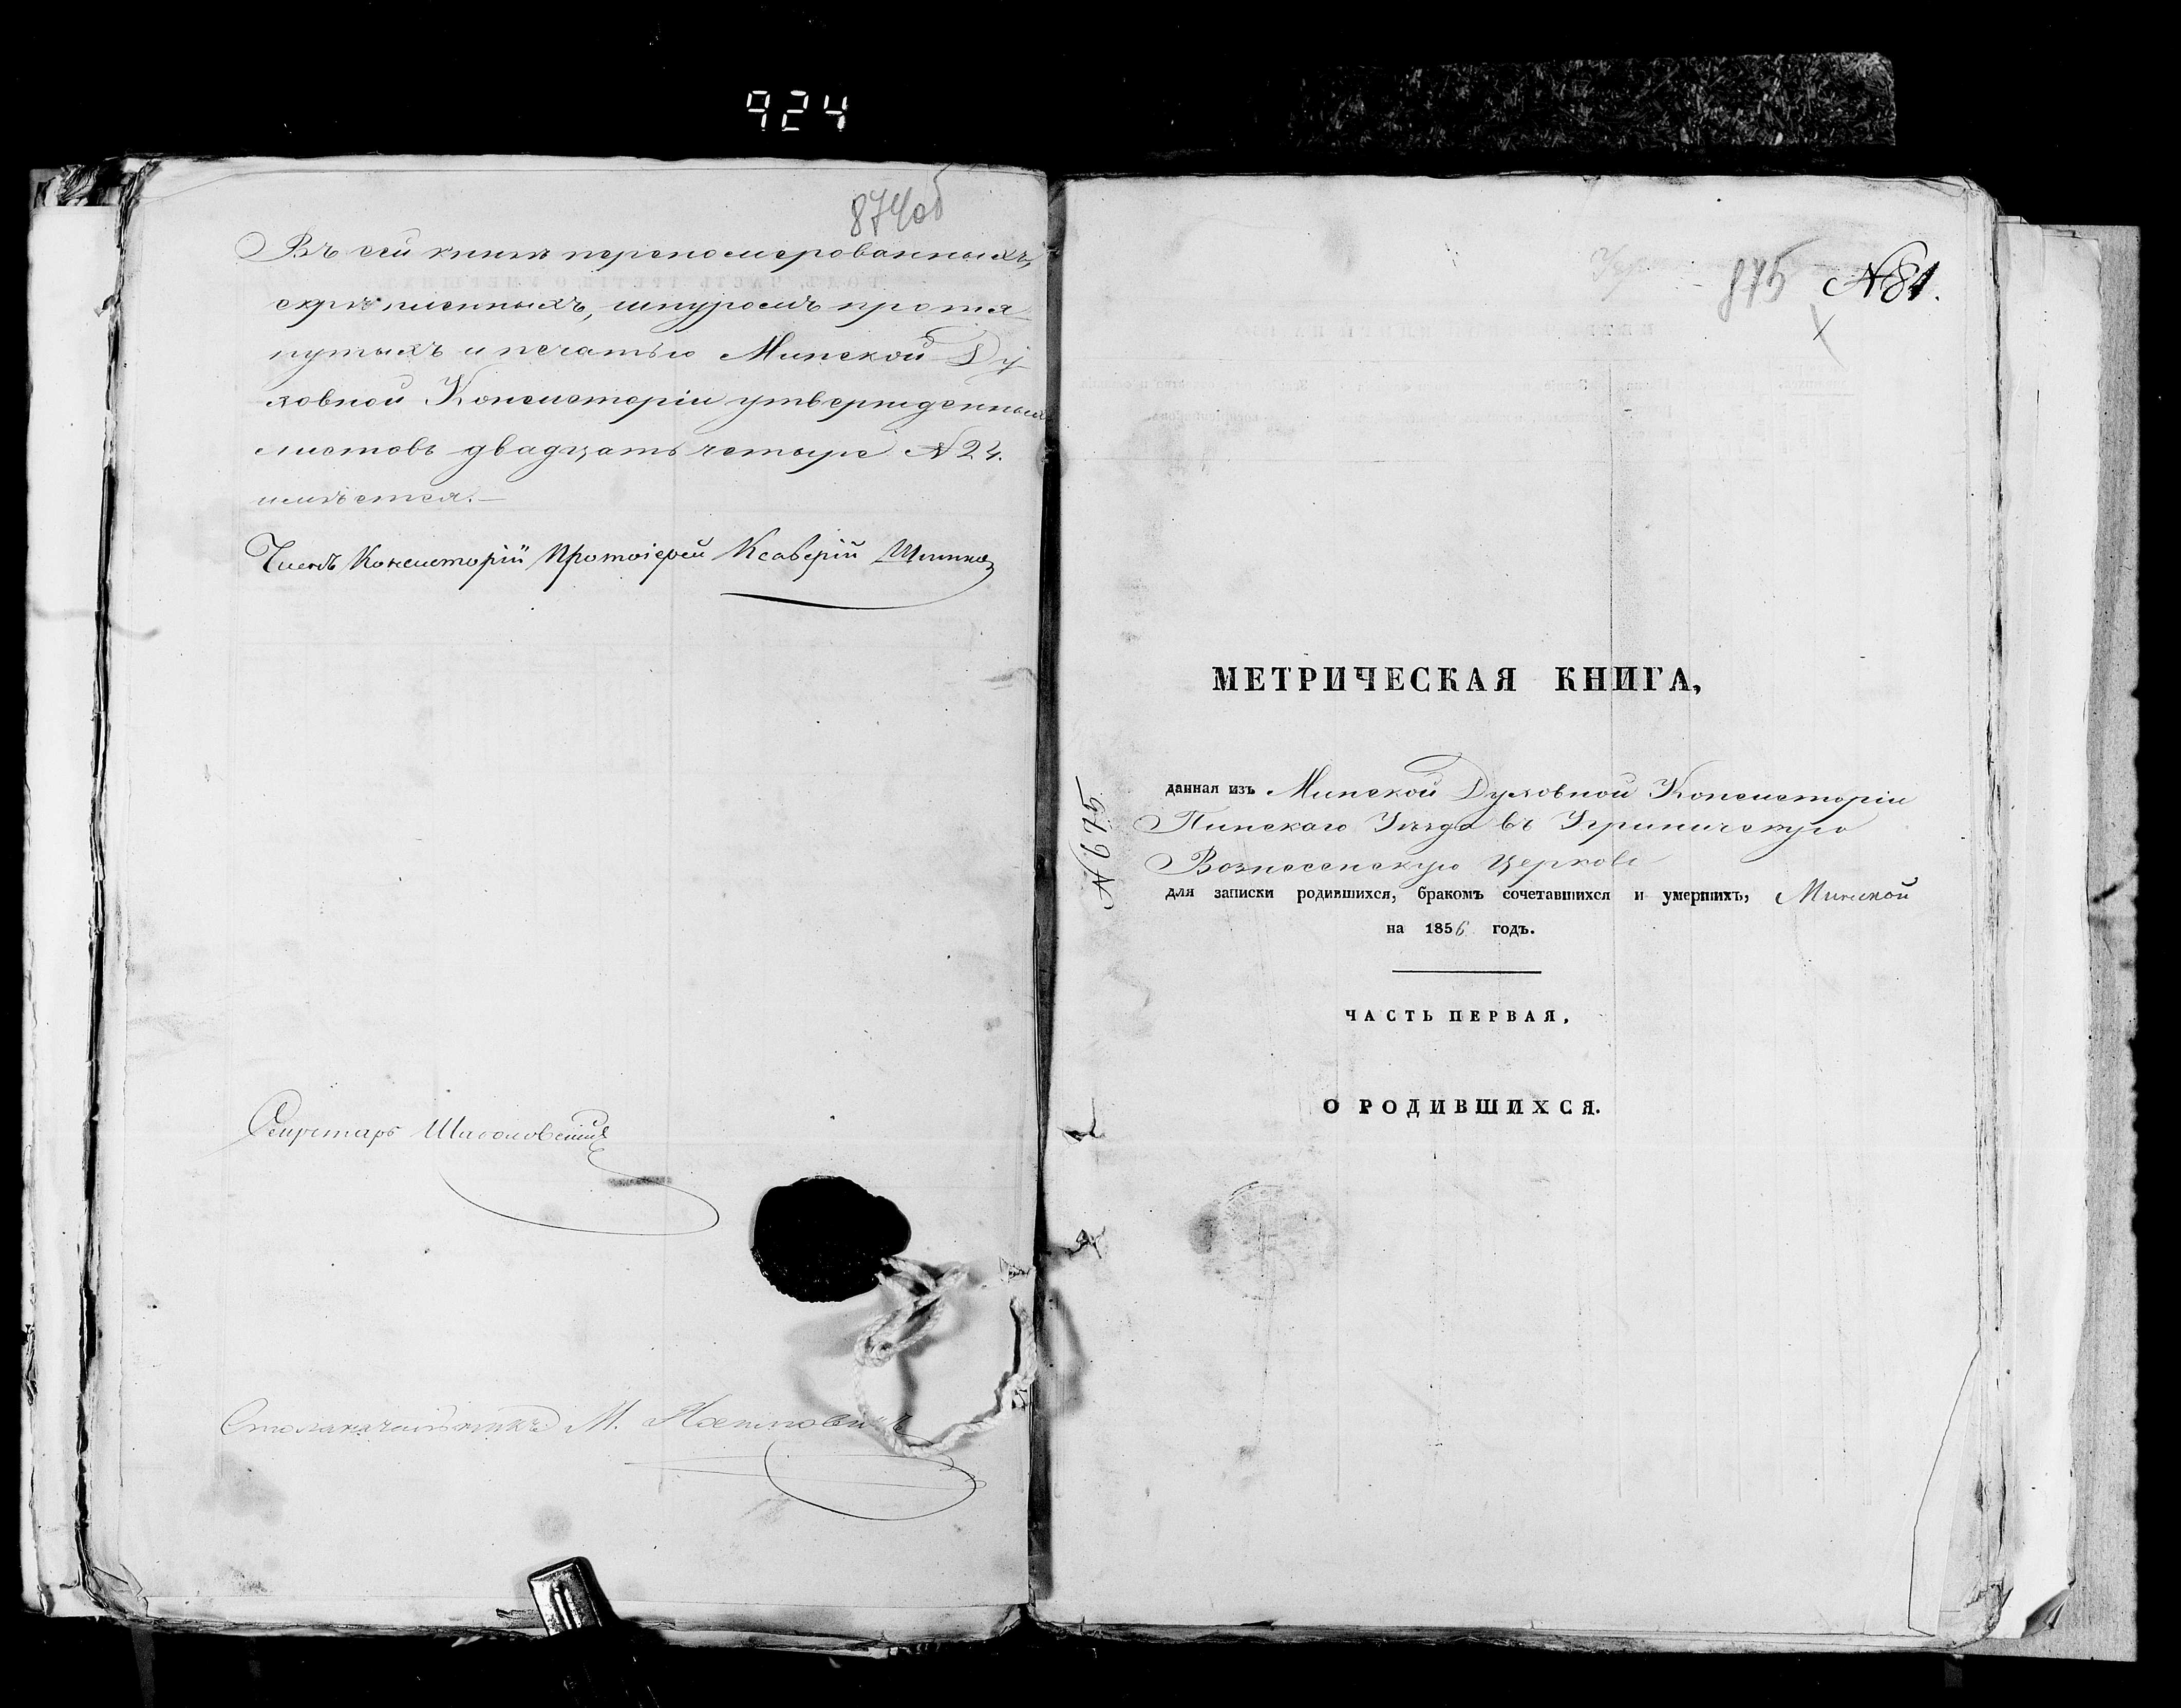 924
874об
Въ сей книгѣ перономерованныхъ,
скрѣпленныхъ, шнуромъ протя
нутыхъ и печатью Минской Ду
ховной Консисторіи утвержденныхъ
листовъ двадцать четыре N 24.
имѣется.—
Членъ Консисторіи Протоіерей Ксаверій
Секретарь
Столоначальникъ М.
875 N 81.
МЕТРИЧЕСКАЯ КНИГА,
данная изъ Минской Духовной Консисторіи
Пинскаго Уѣзда въ Угриничскую
Вознесенскую Церковь
для записки родившихся, бракомъ сочетавшихся и умершихъ, Минской
на 1856 годъ.
N 675
ЧАСТЬ ПЕРВАЯ,
О РОДИВШИХСЯ.